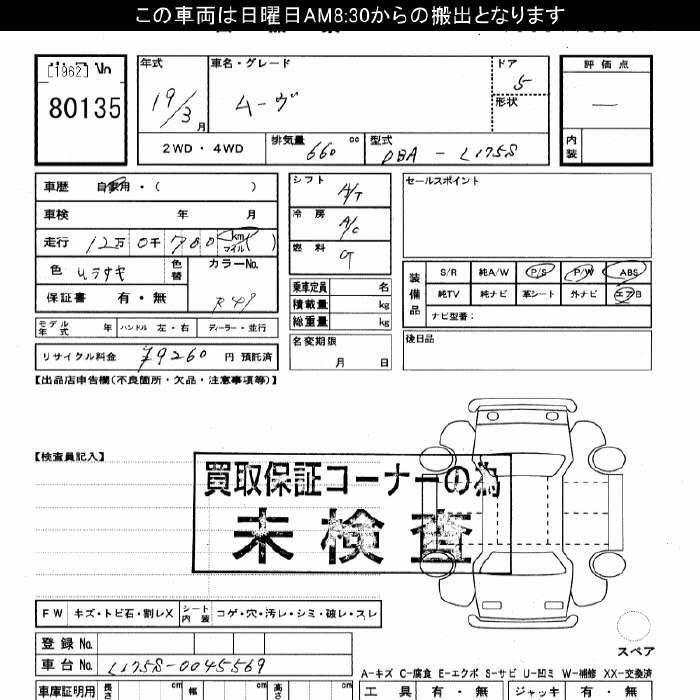 この車両は日曜日AM8:30からの搬出となります
[1962] No
80135
年式 19/3 月
車名・グレード ムーヴ
ドア 5
形状
評価点 —
内装
2WD・4WD
排気量 660 cc
型式 DBA-L175S
車歴 自家用・( )
車検 年 月
走行 12万0千780 km マイル ( )
色 ムラサキ 色替
カラーNo.
保証書 有・無
モデル年式 年 ハンドル 左・右 ディーラー・並行
リサイクル料金 ¥9260 円 預託済
シフト A/T
冷房 A/C
燃料 G
乗車定員 名
積載量 kg
総重量 kg
名変期限 月 日
セールスポイント
装備品
S/R 純A/W P/S P/W ABS
純TV 純ナビ 革シート 外ナビ エアB
ナビ型番:
後日品
【出品店申告欄(不良箇所・欠品・注意事項等)】
【検査員記入】
買取保証コーナーの為
未検査
FW キズ・トビ石・割レX シート内装 コゲ・穴・汚レ・シミ・破レ・スレ
スペア
登録No.
車台No. L175S-0045569
A-キズ C-腐食 E-エクボ S-サビ U-凹ミ W-補修 XX-交換済
車庫証明用 長さ cm 幅 cm 高さ cm
工具 有・無 ジャッキ 有・無